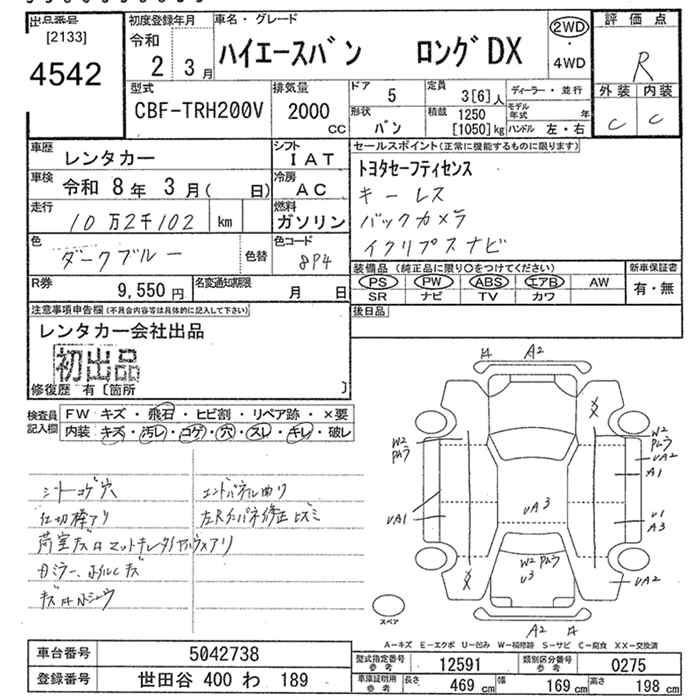 出品番号
[2133]
4542
初度登録年月
令和
2 3月
車名・グレード
ハイエースバン ロングDX
2WD
・
4WD
評価点
R
外装 内装
C C
型式
CBF-TRH200V
排気量
2000
CC
ドア 5
形状 バン
定員 3[6]人
積載 1250
[1050]kg
ディーラー・並行
モデル年式 年
ハンドル 左・右
車歴 レンタカー
シフト
IAT
車検 令和 8年 3月( 日)
冷房
AC
走行 10万2千102 km
燃料
ガソリン
色 ダークブルー 色替
色コード
8P4
R券 9,550円
名変通知期限
月 日
セールスポイント(正常に機能するものに限ります)
トヨタセーフティセンス
キーレス
バックカメラ
イクリプスナビ
装備品(純正品に限り○をつけてください)
PS PW ABS エアB AW
SR ナビ TV カワ
新車保証書
有・無
後日品
注意事項申告欄(不具合内容等は具体的に記入して下さい)
レンタカー会社出品
初出品
修復歴 有〔箇所 〕
検査員記入欄
FW キズ・飛石・ヒビ割・リペア跡・×要
内装 キズ・汚レ・コゲ・穴・スレ・キレ・破レ
シートコゲ穴
仕切棒アリ
エンドパネル曲り
A2
W2
W2
UA2
A1
UA1
UA3
U1
A3
W2
U3
UA2
A2
スペア
A−キズ E−エクボ U−凹み W−補修跡 S−サビ C−腐食 XX−交換済
車台番号 5042738
登録番号 世田谷 400 わ 189
型式指定番号 参考 12591
類別区分番号 参考 0275
車庫証明用 参考 長さ 469 cm 幅 169 cm 高さ 198 cm